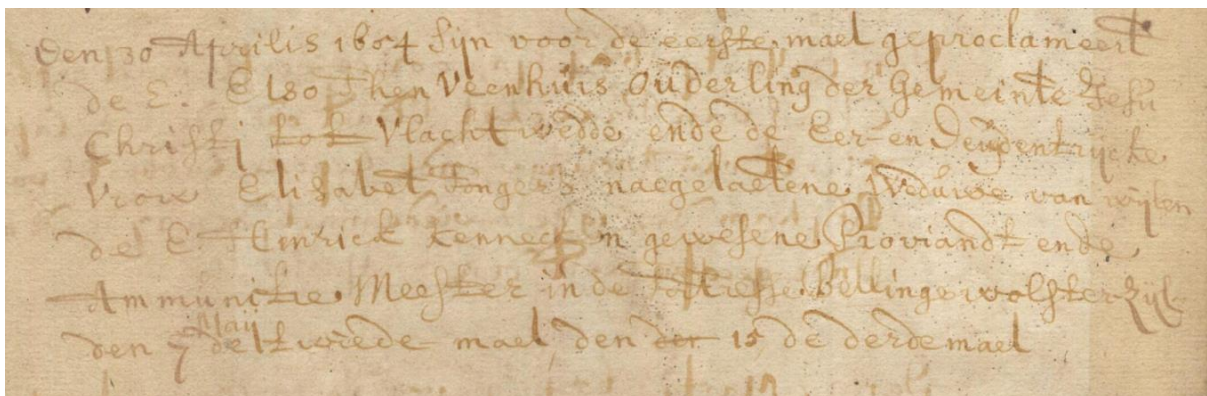 Den 30 Aprilis 1654 sijn voor de eerste mael geproclameert
de E. Elso Then Veenhuis Ouderling der Gemeinte Jesu
Christij tot Vlachtwedde ende de Eer en deugdentrijcke
Vrow Elisabet Tongers naegelaetene Weduwe van wijlen
de E Hinrick gewesene Proviandt ende
Ammunitie Meester in de Fortresse Bellingewolster Zijl
Maij
den 7 de twede mael den der 15 de derde mael